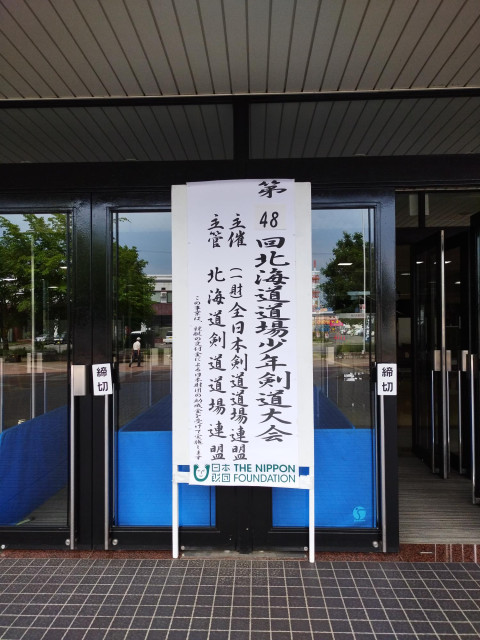 第48回北海道道場少年剣道大会
主催 (一財)全日本剣道道場連盟
主管 北海道剣道道場連盟
この事業は、競艇の交付金による日本財団の助成金を受けて実施します
日本財団 THE NIPPON FOUNDATION
締切
締切